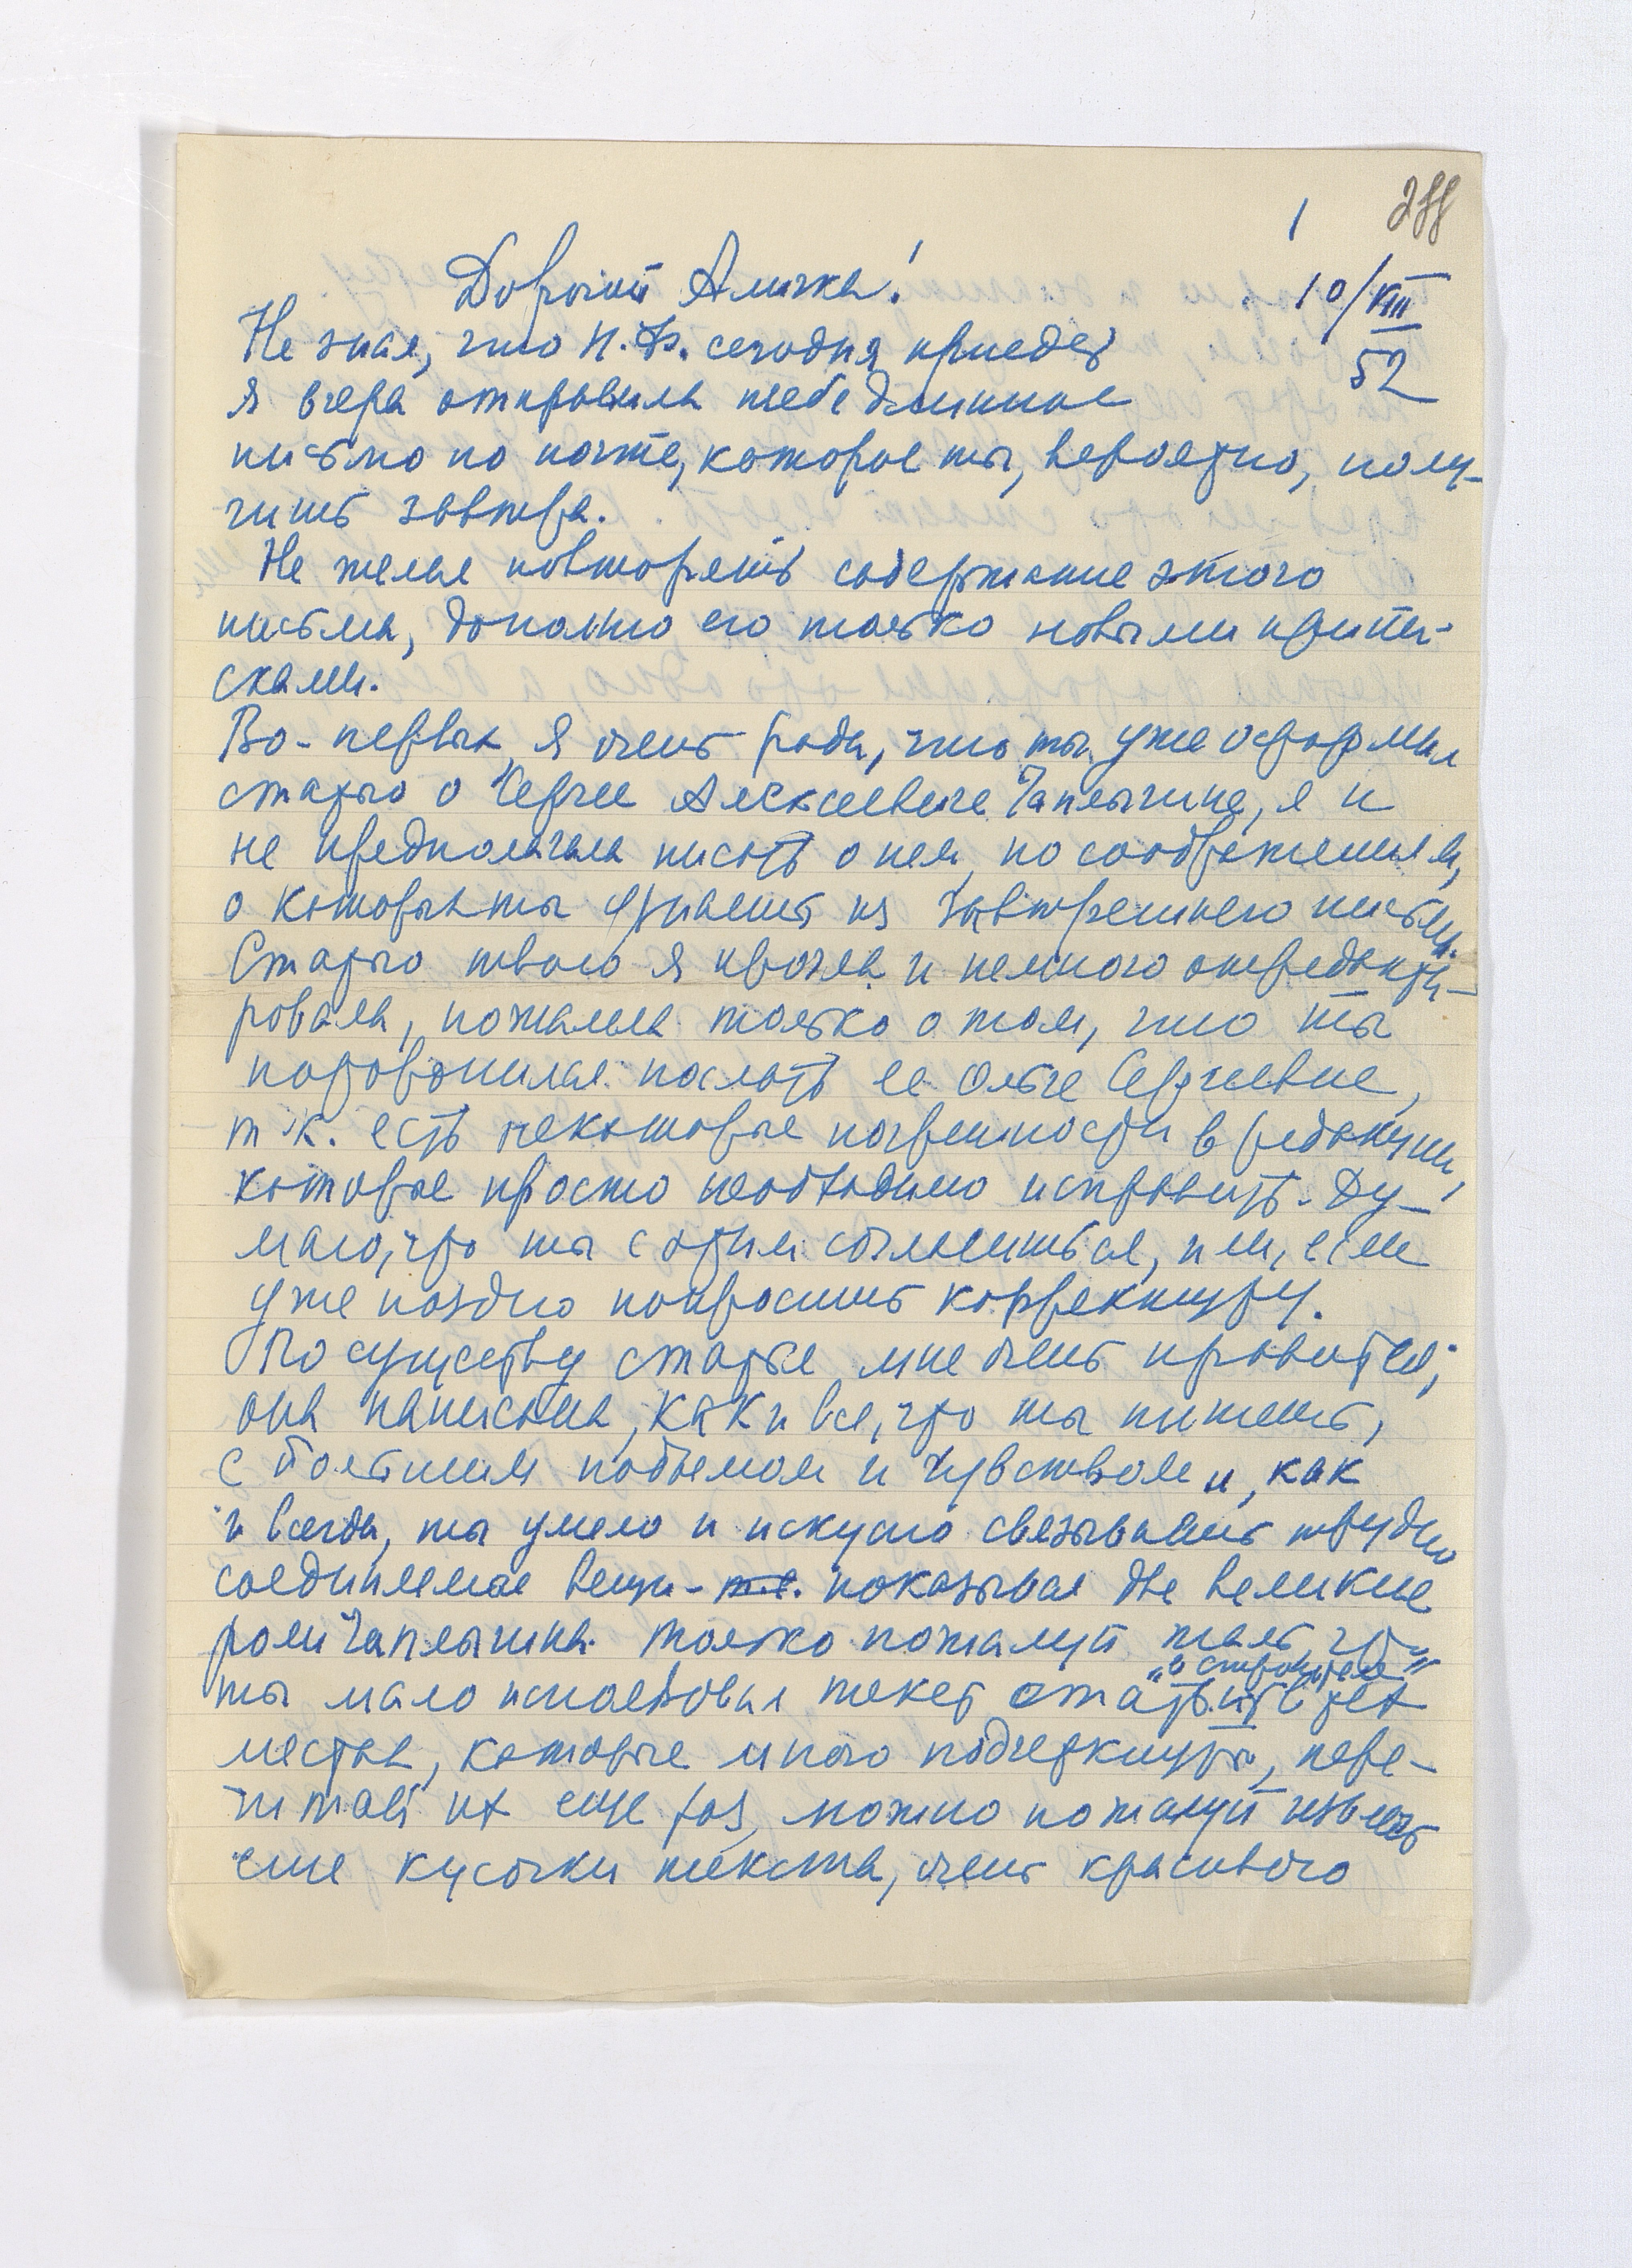 1
288
Дорогой Аличка!
10/VIII
52
Не зная, что Н.Ф. сегодня приедет
я вчера отправила тебе длинное
письмо по почте, которое ты, вероятно, полу-
чишь завтра.
Не желая повторять содержание этого
письма, дополню его только новыми припи-
сками.
Во-первых, я очень рада, что ты уже оформил
статью о Сергее Алексеевиче Чаплыгине, я и
не предполагала писать о нем, по соображениям,
о которых ты узнаешь из завтрешнего письма.
Статью твою я прочла и немного отредакти-
ровала, пожалела только о том, что ты
поторопился послать ее Ольге Сергеевне,
т.к. есть некоторые погрешности в редакции,
которые просто необходимо исправить. Ду-
маю, что ты с этим согласишься, или, если
уже поздно попросишь корректуру.
По существу статья мне очень нравится;
она написана, как и все, что ты пишешь,
с большим подъемом и чувством и, как
и всегда, ты умело и искусно связываешь трудно
соединимые вещи - т.е. показывая две великие
роли Чаплыгина. Только пожалуй жаль, что
ты мало использовал текст
"о строителе"
тех
местах, которые мною подчеркнуты, пере-
читай их еще раз, можно пожалуй извлечь
еще кусочки текста, очень красивого